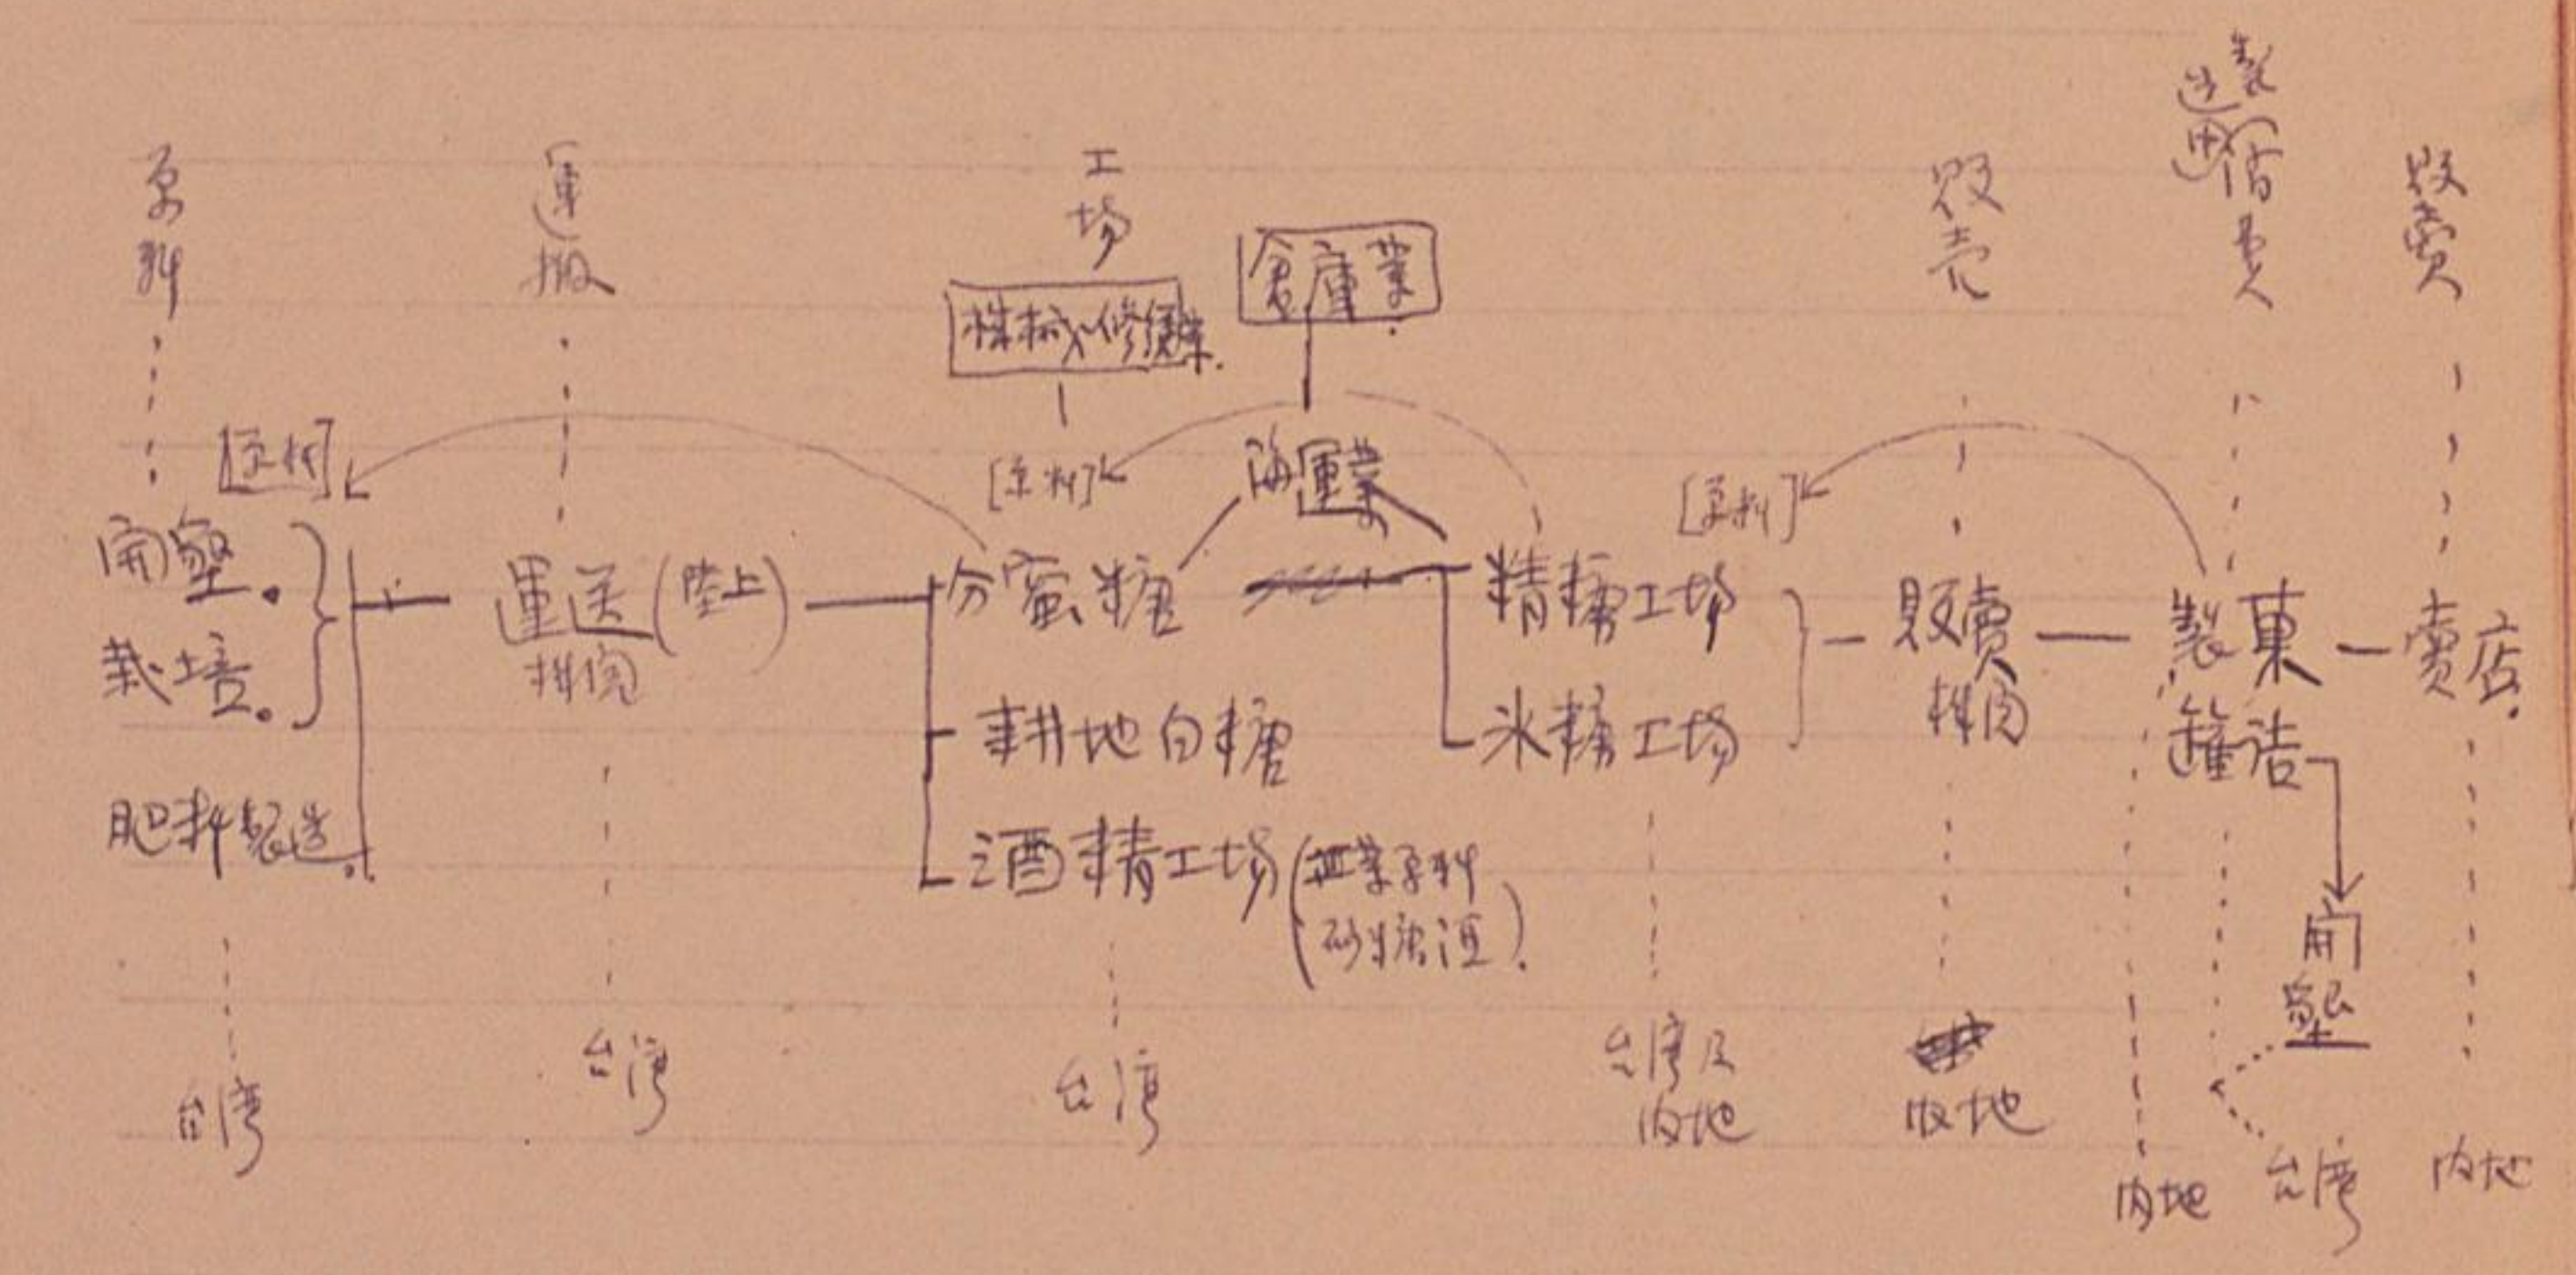 原料
運搬
工場
販売
製造
消費
販賣
倉庫業
[原料]
[原料]
海運業
[原料]
開墾。
栽培。
肥料製造。
運送(陸上)
機関
分蜜糖
耕地白糖
酒精工場
砂糖
精糖工場
氷糖工場
販賣
機関
製菓
罐詰
賣店。
開墾
台湾
台湾
台湾
台湾及
内地
内地
内地
台湾
内地